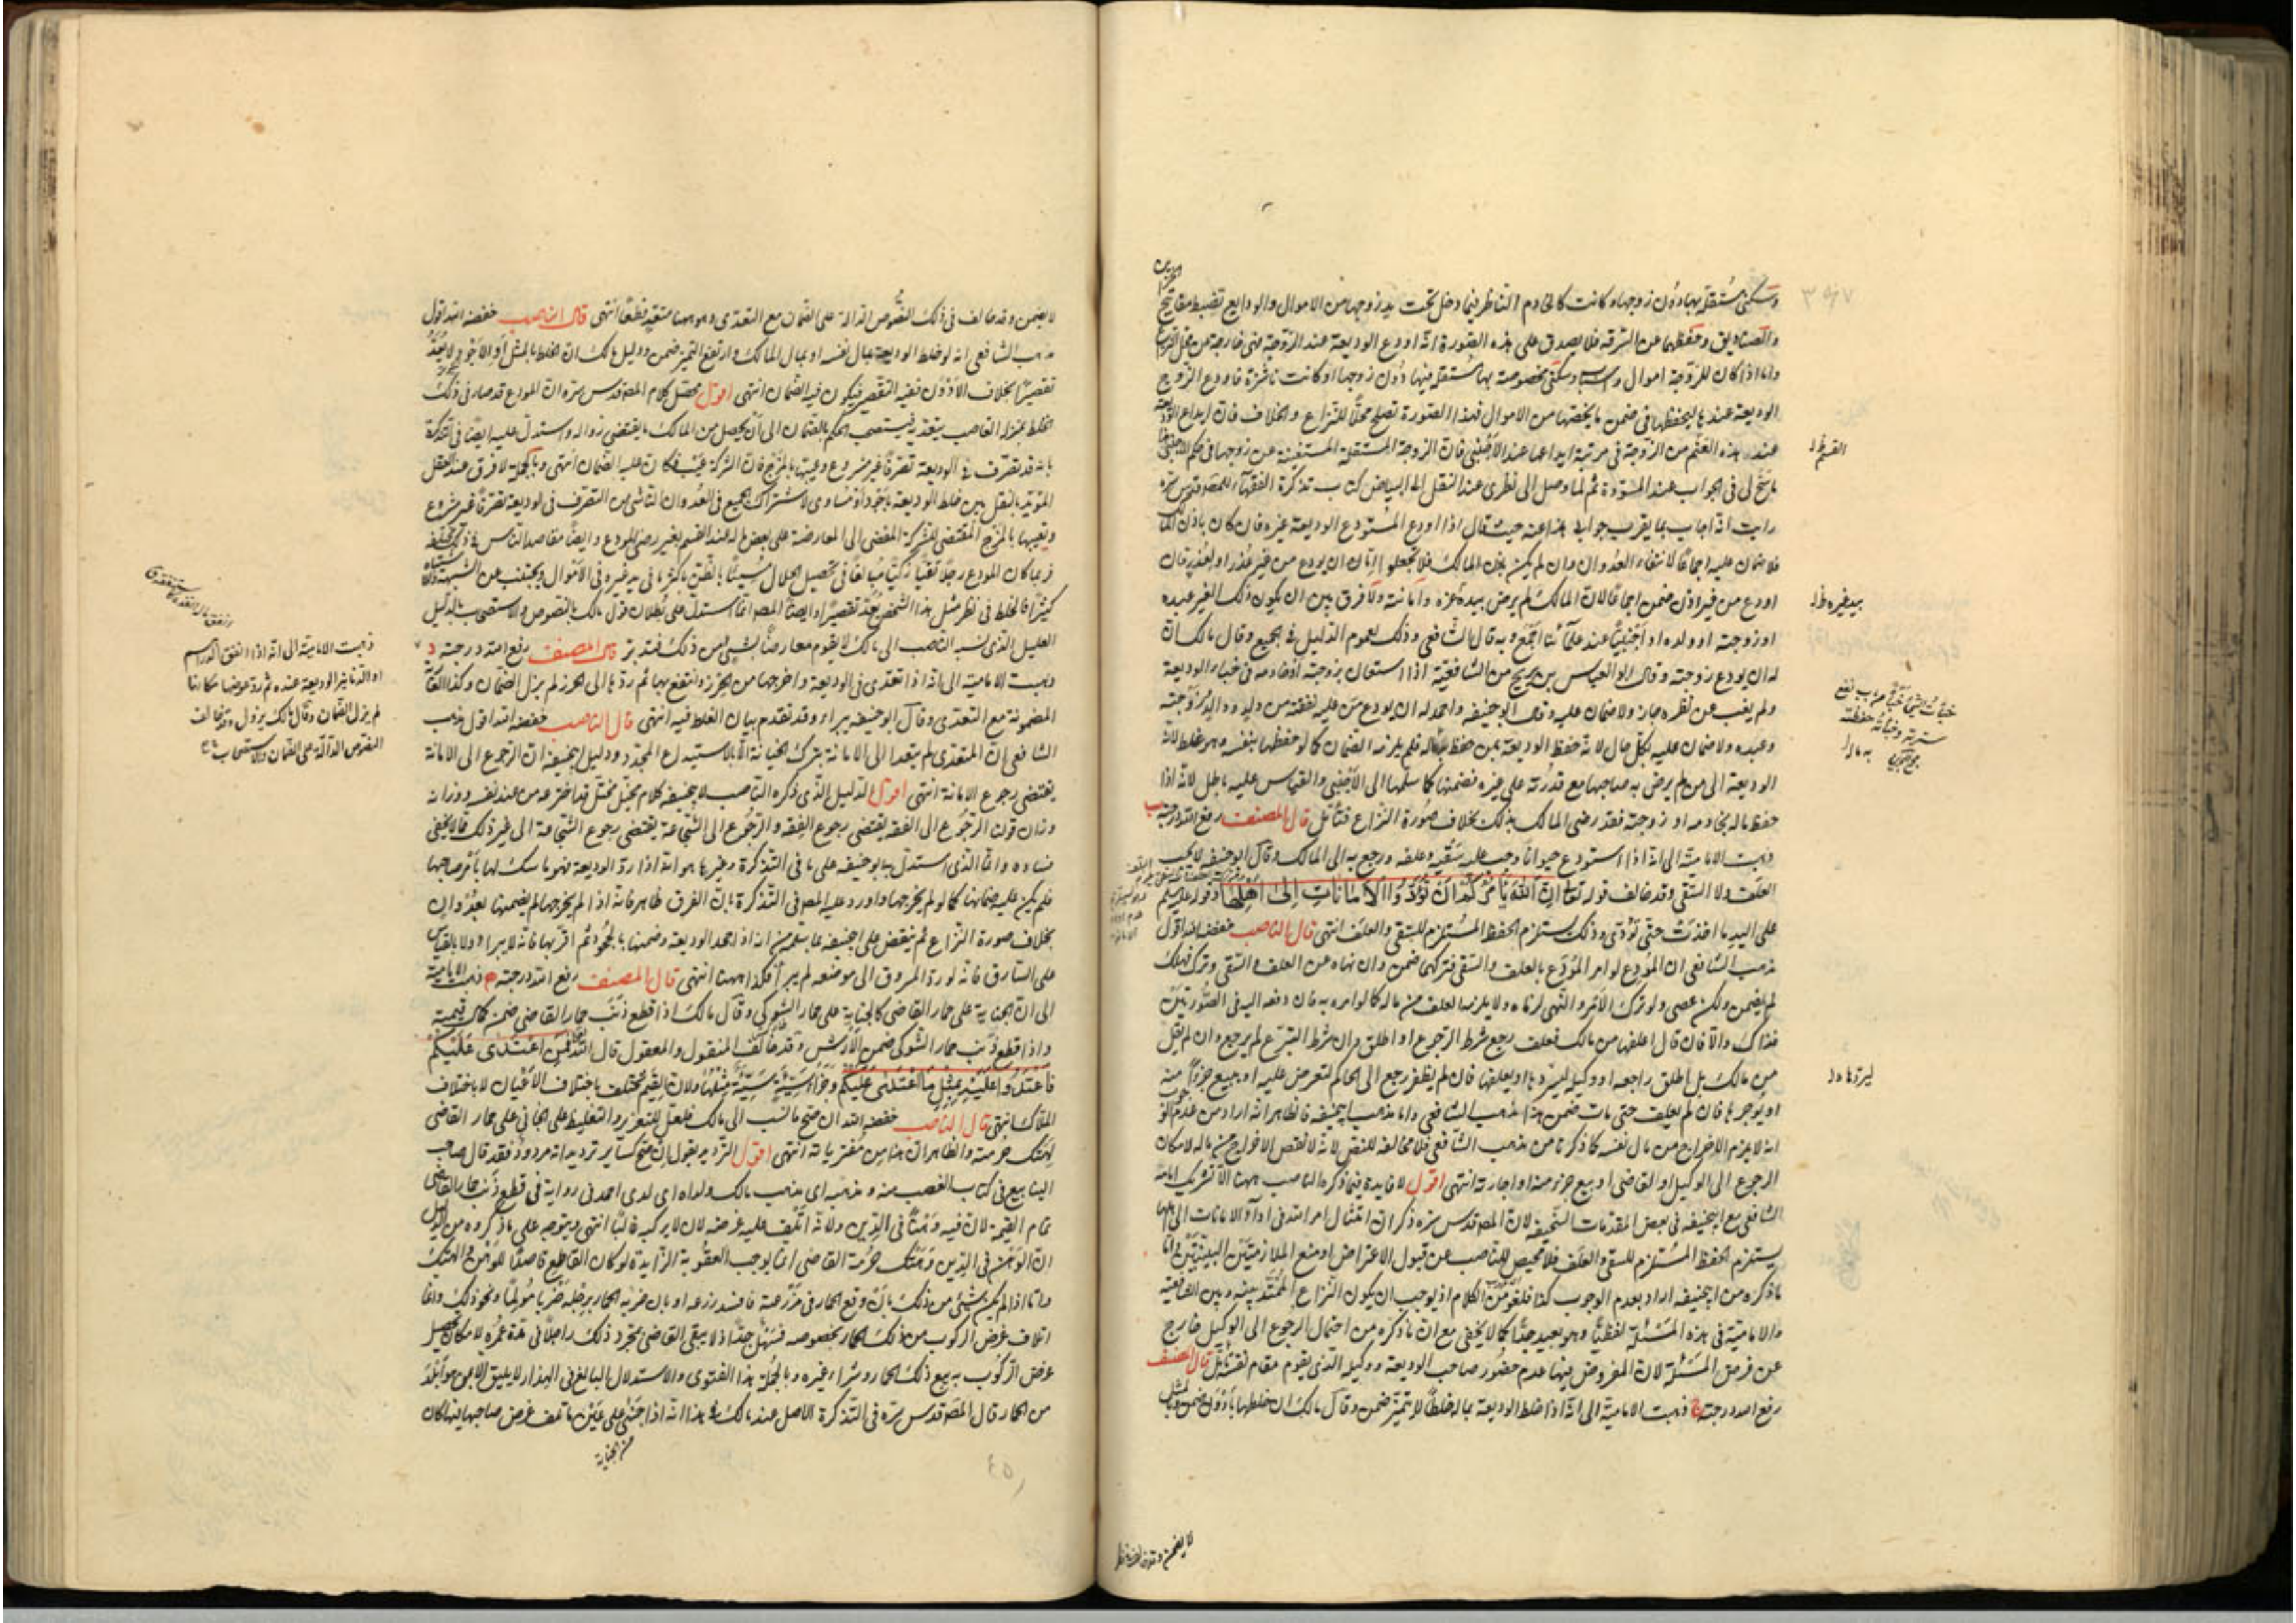 وسكنى مستقلة بها دون زوجها وكانت كالخادم الناظر فيما دخل تحت يد زوجها من الاموال والودايع تضبط مفاتيح
والصناديق وحفظها عن السرقة فلا يصدق على هذه الصورة انه اودع الوديعة عند الزوجة
واما اذا كان للزوجة اموال وسكنى مخصوصة بها مستقلة فيها دون زوجها او كانت ناشزة فاودع الزوج
الوديعة عندها ليحفظها في ضمن ما يخصها من الاموال فهذا الصورة تصلح محلا للنزاع والخلاف فان ايداع
عند هذه القسم من الزوجة في مرتبة ايداعها عند الاجنبي فان الزوجة المستقلة المستغنية عن زوجها في حكم
ما سنح لى في الجواب عند المسودة ثم لما وصل الى نظرى عند النقل الى البياض كتاب تذكرة الفقهاء للمصنف قدس سره
رايت انه اجاب بما يقرب جوابى هذا عنه حيث قال اذا اودع المستودع الوديعة غيره فان كان باذن المالك
فلا ضمان عليه اجماعا لانتفاء العدوان وان لم يكن باذن المالك فلا يخلو اما ان يودع من غير عذر او لعذر فان
اودع من غير اذن ضمن اجماعا لان المالك لم يرض بيد غيره وامانته ولا فرق بين ان يكون ذلك الغير عبده
او زوجته او ولده او اجنبيا عند علمائنا اجمع وبه قال الشافعى وذلك لعموم الدليل في الجميع وقال مالك ان
له ان يودع زوجته وقال ابو العباس بن سريج من الشافعية اذا استعان بزوجته او خادمه في خباء الوديعة
ولم يغب عن نظره جاز ولا ضمان عليه وقال ابو حنيفة واحمد له ان يودع من عليه نفقته من ولد ووالد وزوجته
وعبده ولا ضمان عليه بكل حال لانه حفظ الوديعة بمن حفظ به ماله فلم يلزمه الضمان كما لو حفظها بنفسه وهو غلط لانه
الوديعة الى من لم يرض به صاحبها مع قدرته على غيره فضمنها كما سلمها الى الاجنبي والقياس عليه باطل لانه اذا
حفظ ماله بخادمه او زوجته فقد رضى المالك بذلك بخلاف صورة النزاع فتأمل قال المصنف رفع الله درجته ب
ذهبت الامامية الى انه اذا استودع حيوانا وجب عليه سقيه وعلفه ورجع به الى المالك وقال ابو حنيفة لا يجب
العلف ولا السقى وقد خالف قوله تعالى ان الله يأمركم ان تؤدوا الامانات الى اهلها وقوله عليه السلام
على اليد ما اخذت حتى تؤدى وذلك يستلزم الحفظ المستلزم للسقى والعلف انتهى قال الناصب خفضه الله اقول
مذهب الشافعى ان المودع لو امر المودع بالعلف والسقى فتركهما ضمن وان نهاه عن العلف والسقى وترك فهلك
لم يضمن ولكن عصى ولو ترك الامر والنهى لزماه ولا يلزمه العلف من ماله كما لو امره به فان دفعه اليه في الصورتين
فذاك والا فان قال اعلفها من مالك فعلف رجع شرط الرجوع او اطلق وان شرط التبرع لم يرجع وان لم يقل
من مالك بل اطلق راجعه او وكيله ليستردها او يعلفها فان لم يظفر رجع الى الحاكم ليعرض عليه او يبيع جزءا منه
او يوجرها فان لم يعلف حتى مات ضمن هذا مذهب الشافعى واما مذهب ابى حنيفة فالظاهر انه اراد من عدم
انه لا يلزم الاخراج من مال نفسه كما ذكرنا من مذهب الشافعى فلا مخالفة للنص لانه لا نقتضى الاخراج من ماله لامكان
الرجوع الى الوكيل او القاضى او بيع جزء منه او اجارته انتهى اقول لا فايدة فيما ذكره الناصب ههنا الا تشريك امامه
الشافعى مع ابى حنيفة في بعض المقدمات السخيفة لان المصنف قدس سره ذكر ان امتثال امر الله في اداء الامانات الى اهلها
يستلزم الحفظ المستلزم للسقى والعلف فلا محيص للناصب عن قبول الاعتراض او منع الملازمتين البينتين واما
ما ذكره من ابى حنيفة اراد بعدم الوجوب كذا فلغو من الكلام اذ يوجب ان يكون النزاع الممتد بينه وبين الشافعية
والامامية في هذه المسئلة لفظيا وهو بعيد جدا كما لا يخفى مع ان ما ذكره من احتمال الرجوع الى الوكيل خارج
عن فرض المسئلة لان المفروض فيها عدم حضور صاحب الوديعة ووكيله الذى يقوم مقام نفسه تأمل قال المصنف
رفع الله درجته ج ذهبت الامامية الى انه اذا خلط الوديعة بماله خلطا لا يتميز ضمن وقال مالك ان خلطها بادون ضمن
لا يضمن وقد خالف
لا يضمن وقد خالف في ذلك النصوص الدالة على الضمان مع التعدى وهو ههنا متعد قطعا انتهى قال الناصب خفضه الله اقول
مذهب الشافعى انه لو خلط الوديعة بمال نفسه او بمال المالك وارتفع التميز ضمن ودليل مالك ان الخلط بالمثل او الاجود لا يعد
تقصيرا بخلاف الادون ففيه التقصير فيكون فيه الضمان انتهى اقول محصل كلام المصنف قدس سره ان المودع قد صار في ذلك
الخلط بمنزلة الغاصب بتعديه فيستصحب الحكم بالضمان الى ان يحصل من المالك ما يقتضى زواله واستدل عليه ايضا في التذكرة
بانه قد تصرف في الوديعة تصرفا غير مشروع وعيبها بالمزج فان الشركة عيب فكان عليه الضمان انتهى وبالجملة لا فرق عند العقل
المؤيد بالنقل بين خلط الوديعة باجود او مساوى لاشتراك الجميع في العدوان الناشى من التصرف في الوديعة تصرفا غير مشروع
وتعيبها بالمزج المقتضى للشركة المفضى الى المعاوضة على بعض ماله عند القسم بغير رضى المودع وايضا مقاصد الناس في ذلك مختلفة
فربما كان المودع رجلا تقيا زكيا مبالغا في تحصيل الحلال
كثيرا فالخلط في نظر مثل هذا الشخص يعد تقصيرا وايضا المصنف انما استدل على بطلان قول مالك بالنصوص والاستصحاب بالدليل
العليل الذى نسبه الناصب الى مالك لا يقوم معارضا بشئ من ذلك فتدبر قال المصنف رفع الله درجته د
ذهبت الامامية الى انه اذا تعدى في الوديعة واخرجها من الحرز وانتفع بها ثم ردها الى الحرز لم يزل الضمان وكذا
المضمونة مع التعدى وقال ابو حنيفة يبرء وقد تقدم بيان الغلط فيه انتهى قال الناصب خفضه الله اقول مذهب
الشافعى ان المتعدى لم يتعد الى الامانة بترك الخيانة الا بالاستيداع المجدد ودليل ابى حنيفة ان الرجوع الى الامانة
يقتضى رجوع الامانة انتهى اقول الدليل الذى ذكره الناصب لابى حنيفة كلام مخيل مختل قد اخترعه من عند نفسه ووزانه
وزان قولك الرجوع الى الفقه يقتضى رجوع الفقه والرجوع الى الشجاعة يقتضى رجوع الشجاعة الى غير ذلك مما لا يخفى
فساده وانما الذى استدل به ابو حنيفة على ما في التذكرة وغيرها هو انه اذا رد الوديعة فهو ماسك لها بامر صاحبها
فلم يكن عليه ضمانها كما لو لم يخرجها واورد عليه المصنف في التذكرة بان الفرق ظاهر فانه اذا لم يخرجها لم يضمنها بعدوان
بخلاف صورة النزاع ثم ينقض على ابى حنيفة بما سلم من انه اذا جحد الوديعة وضمنها بالجحود ثم اقر بها فانه لا يبرا ولا بالقياس
على السارق فانه لو رد المسروق الى موضعه لم يبرأ فكذا ههنا انتهى قال المصنف رفع الله درجته ه ذهبت الامامية
الى ان الجناية على حمار القاضى كالجناية على حمار الشوكى وقال مالك اذا قطع ذنب حمار القاضى ضمن كمال قيمته
واذا قطع ذنب حمار الشوكى ضمن الارش وقد خالف المنقول والمعقول قال الله تعالى فمن اعتدى عليكم
فاعتدوا عليه بمثل ما اعتدى عليكم وجزاء سيئة سيئة مثلها ولان القيم تختلف باختلاف الاعيان لا باختلاف
الملاك انتهى قال الناصب خفضه الله ان صح ما نسب الى مالك فلعل للتعزير والتغليظ على الجانى على حمار القاضى
لهتك حرمته والظاهر ان هذا من مفترياته انتهى اقول الترديد بقوله ان صح كساير ترديداته مردود فقد قال صاحب
الينابيع في كتاب الغصب منه ومذهبه اى مذهب مالك ولداه اى لدى احمد في رواية في قطع ذنب حمار القاضى
تمام القيمة لان فيه وهنا في الدين ولانه اتلف عليه غرضه لان لا يركبه غالبا انتهى ويتوجه على ما ذكروه من الدليل
ان الوهن في الدين وهتك حرمة القاضى انما يوجب العقوبة الزايدة لو كان القاطع قاصدا للوهن والهتك
واما اذا لم يكن شئ من ذلك بان وقع الحمار في مزرعته فافسد زرعه او بان ضربه الحمار برجله ضربا مولما ونحو ذلك واما
اتلاف غرض الركوب من ذلك الحمار بخصوصه فسهل جدا اذ لا يبقى القاضى بمجرد ذلك راجلا في مدة عمره لامكان تحصيل
غرض الركوب به ببيع ذلك الحمار وشراء غيره وبالجملة هذا الفتوى والاستدلال البالغ في الهذار لا يليق الا بمن هو ابلد
من الحمار قال المصنف قدس سره في التذكرة الاصل عند مالك في هذا انه اذا جنى على عين فاتلف غرض صاحبها فيها كان
ذهبت الامامية الى انه اذا انفق الدراهم
او الدنانير الوديعة عنده ثم رد عوضها مكانها
لم يزل الضمان وقال مالك يزول وقد خالف
النصوص الدالة على الضمان والاستصحاب